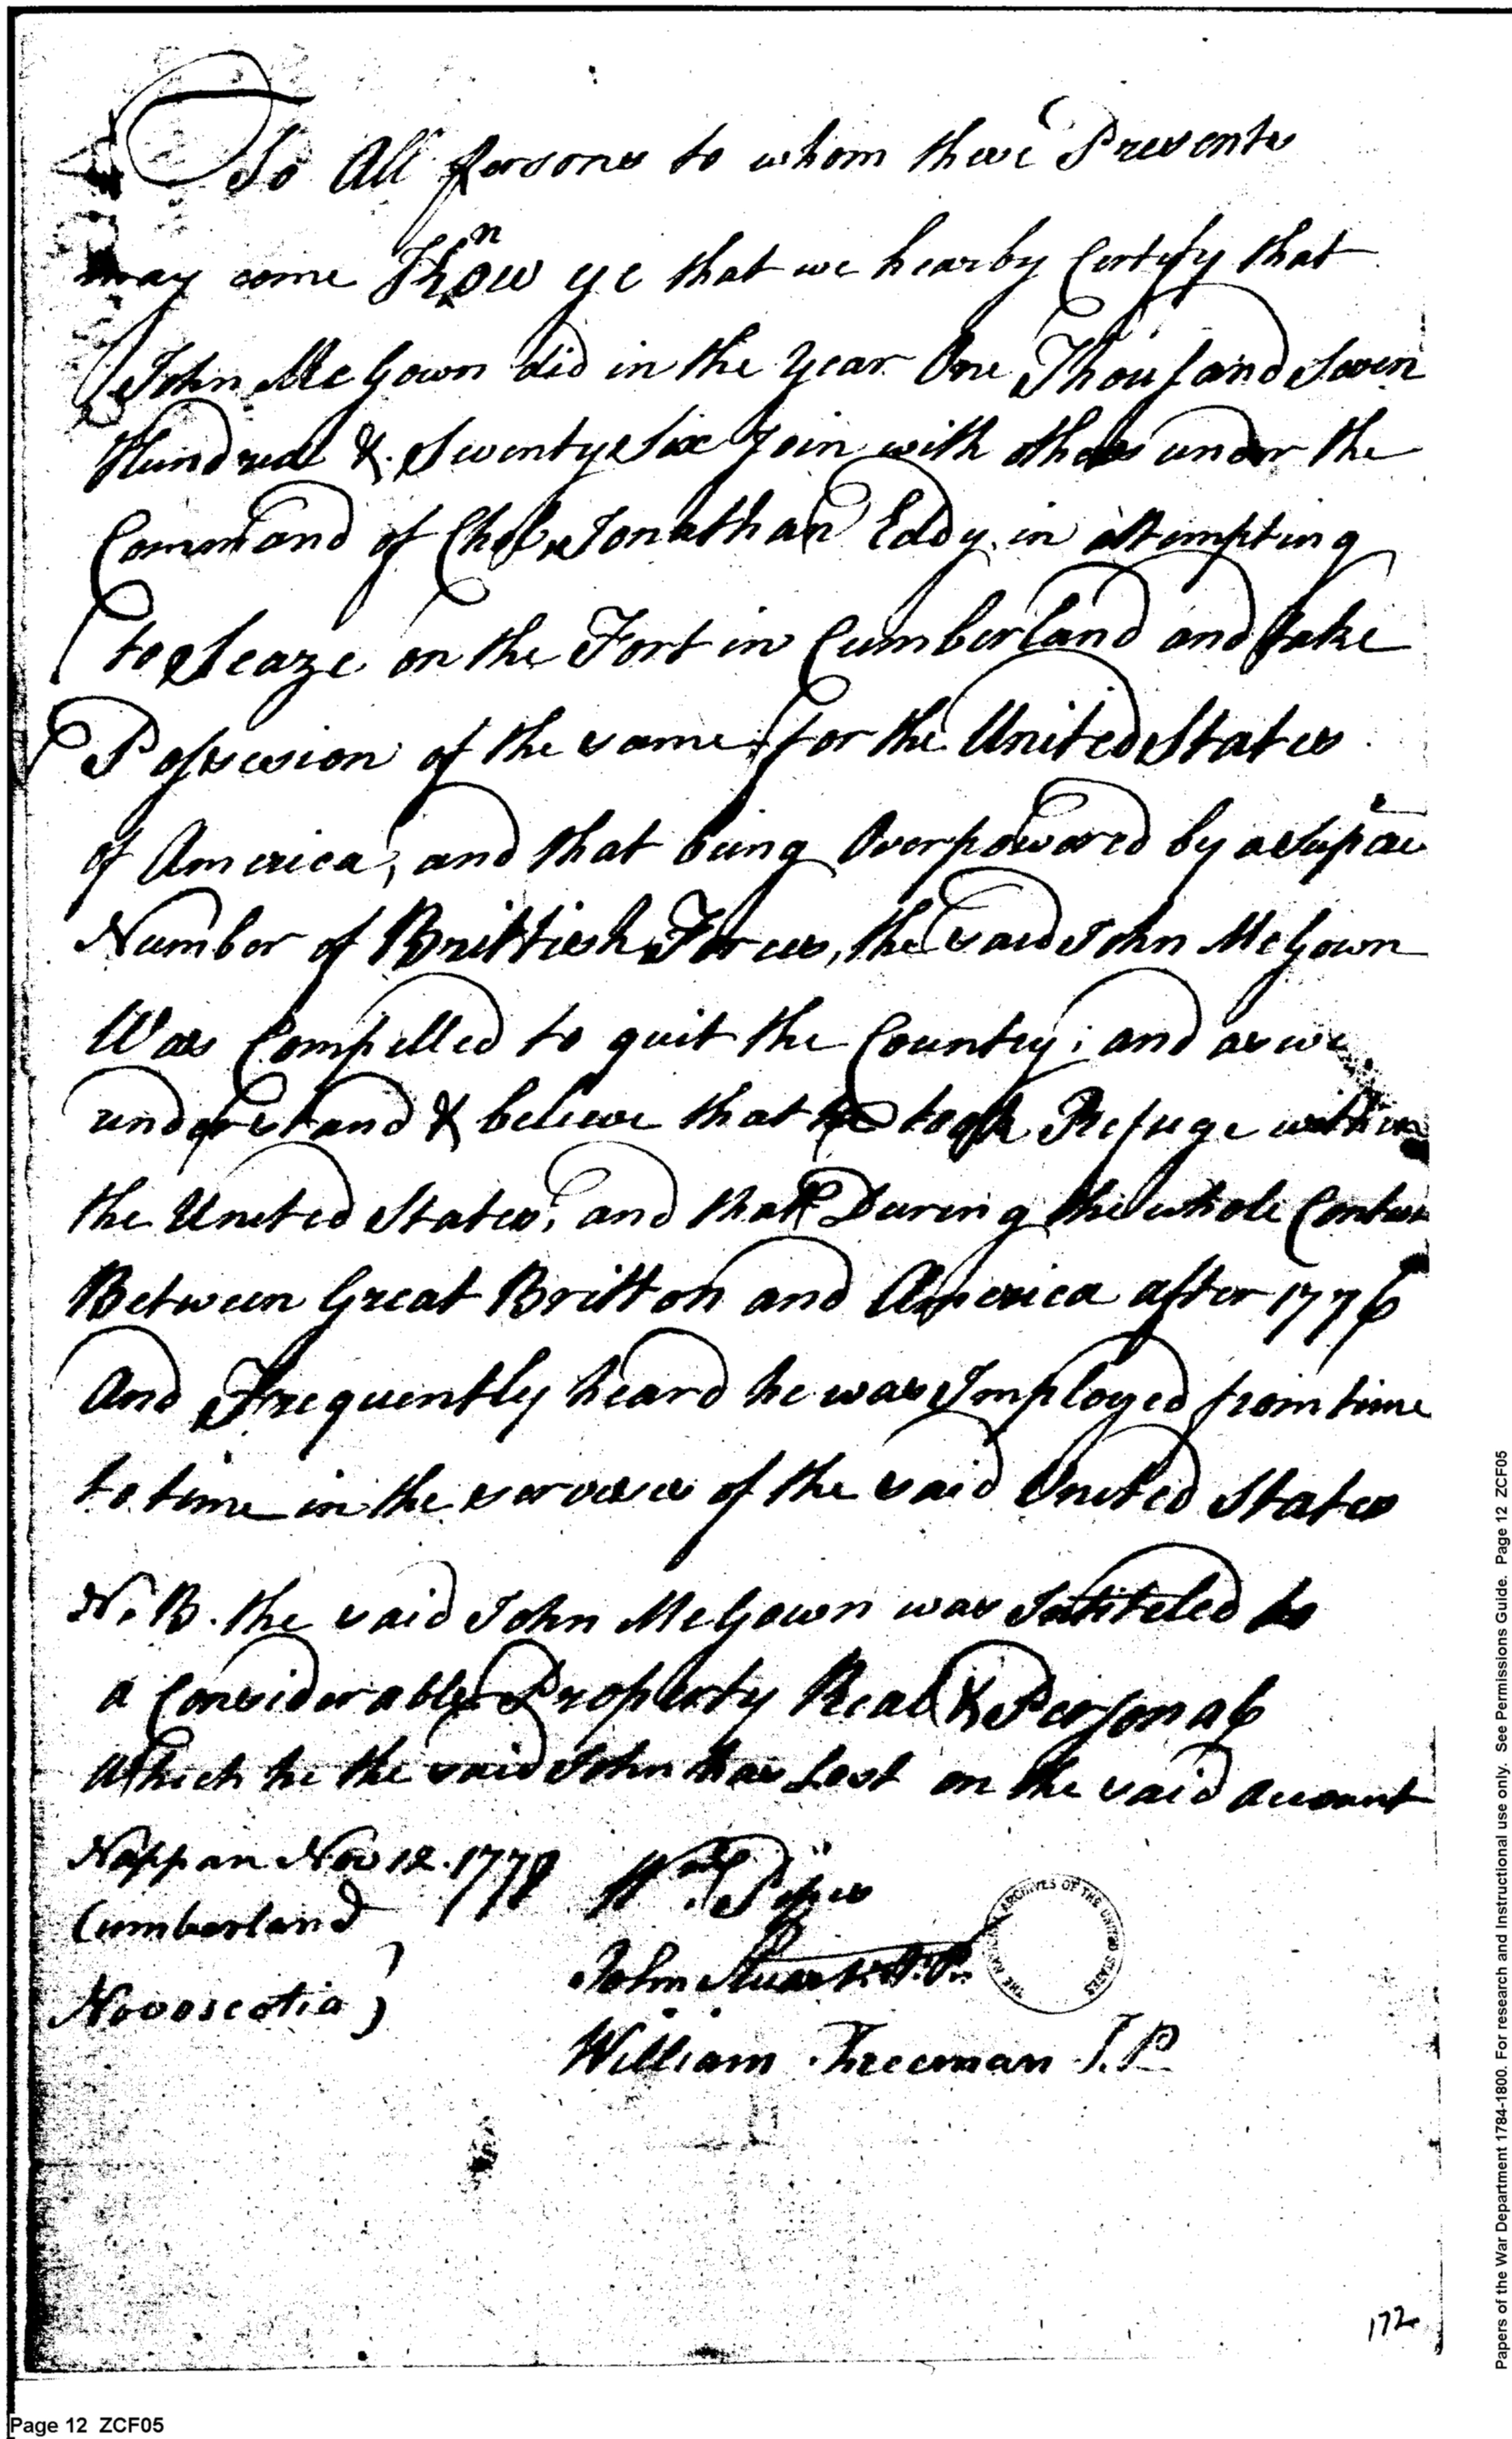 To All Persons to whom these Presents
may come Know ye that we hearby Certify that
John McGown did in the Year One Thousand Seven
Hundred & Seventy Six Join with others under the
Command of Jonathan Eddy in attempting
to Seaze on the Fort in Cumberland and take
Possession of the same for the United States
of America, and that being Overpowered by a
Number of Brittish Forces, the said John McGown
Was Compelled to quit the Country; and as we
understand & believe that he took Refuge within
the United States, and that During the whole
Between Great Britton and America after 1776
And Frequently heard he was Imployed from time
to time in the of the said United States
N.B. the said John McGown was Intiteled to
a Considerable Property Real & Personal
Which he the said John has Lost on the said account
Nappan Nov 12. 
Cumberland
Novoscotia
Wm
John J.P.
William Freeman J.P.
THE NATIONAL ARCHIVES OF THE UNITED STATES
172
Page 12 ZCF05
Papers of the War Department 1784-1800. For research and Instructional use only. See Permissions Guide. Page 12 ZCF05